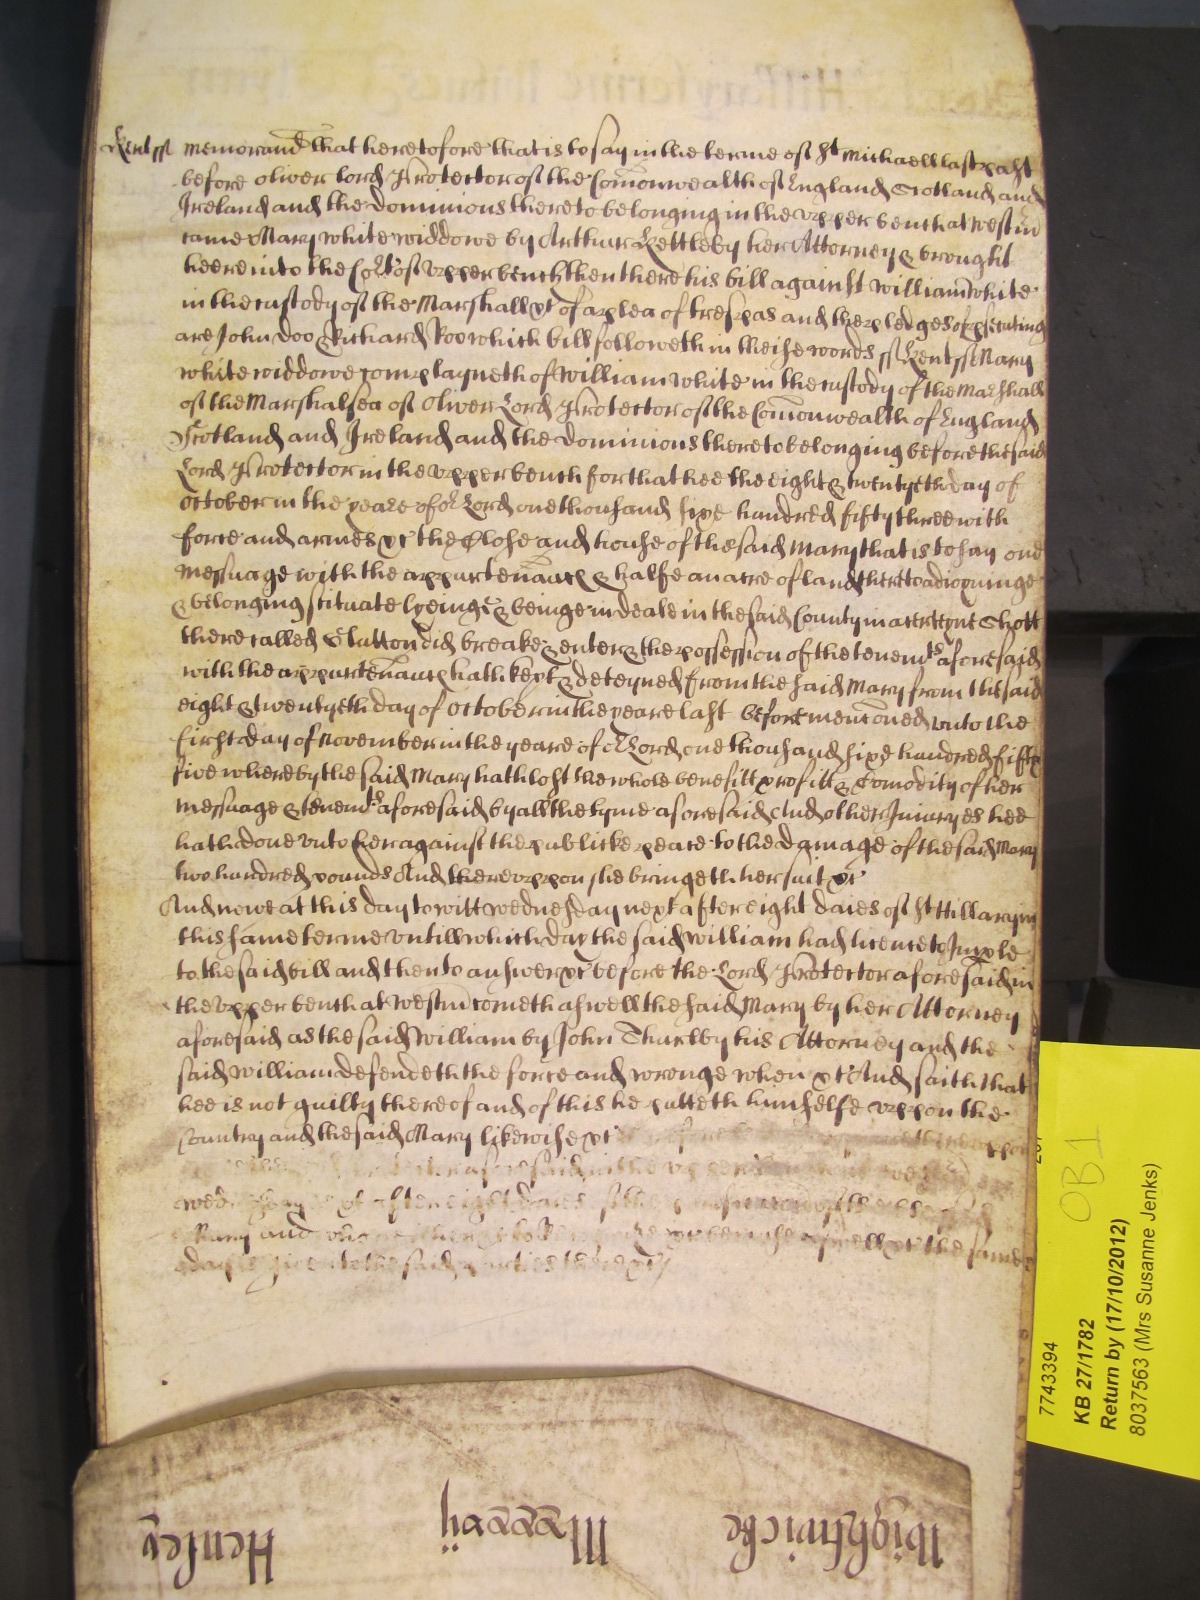 Kent ss Memorand that heretofore that is to say in the terme of St Michaell last past
before Oliver Lord Protector of the Comonwealth of England Scotland and
Ireland and the Dominions thereto belonging in the upper bench at Westm
came Mary White widdowe by Arthur Kettleby her Attorney & brought
heere into the Cort of upper bench then there his bill against William White
in the custody of the Marshall &c of a plea of trespas and the pledges of psecuting
are John Doo & Richard Roo which bill followeth in theise words ss Kent ss Mary
White widdowe complayneth of William White in the custody of the Marshall
of the Marshalsea of Oliver Lord Protector of the Comonwealth of England
Scotland and Ireland and the Dominions thereto belonging before the said
Lord Protector in the upper bench for that hee the eight & twentyeth day of
October in the yeare of or Lord one thousand sixe hundred fifty three with
force and armes &c the Close and house of the said Mary that is to say one
messuage with the appurtenaunces & halfe an acre of land thereto adioyninge
& belonging scituate lyeinge & beinge in Deale in the said County in a certeyne
there called did breake & enter & the possession of the tenemts aforesaid
with the appurtenaunces hath kept & deteyned from the said Mary from the said
eight & twentyeth day of October in the yeare last before mencioned unto the
first day of November in the yeare of or Lord one thousand sixe hundred fifty
five whereby the said Mary hath lost the whole benefitt profitt & Comodity of her
messuage & tenemts aforesaid by all the tyme aforesaid And other Iniuryes hee
hath done unto her against the publicke peace to the damage of the said Mary
two hundred pounds And thereuppon she bringeth her suit &c
And nowe at this day to witt wednesday next after eight daies of St Hillary in
this same terme untill which day the said William had licence to Imple
to the said bill and then to answer &c before the Lord Protector aforesaid in
the upper bench at Westm cometh aswell the said Mary by her Attorney
aforesaid as the said William by John Thurlby his Attorney and the
said William defendeth the force and wronge when &c And saith that
hee is not guilty thereof and of this he putteth himselfe uppon the
Country and the said Mary likewise &c
aforesaid in the upper
after eight daies
and aswell &c the same
day is given to the said parties there &c
Wightwicke Mxxxxij Henley
7743394
KB 27/1782
Return by (17/10/2012)
8037563 (Mrs Susanne Jenks)
OB1